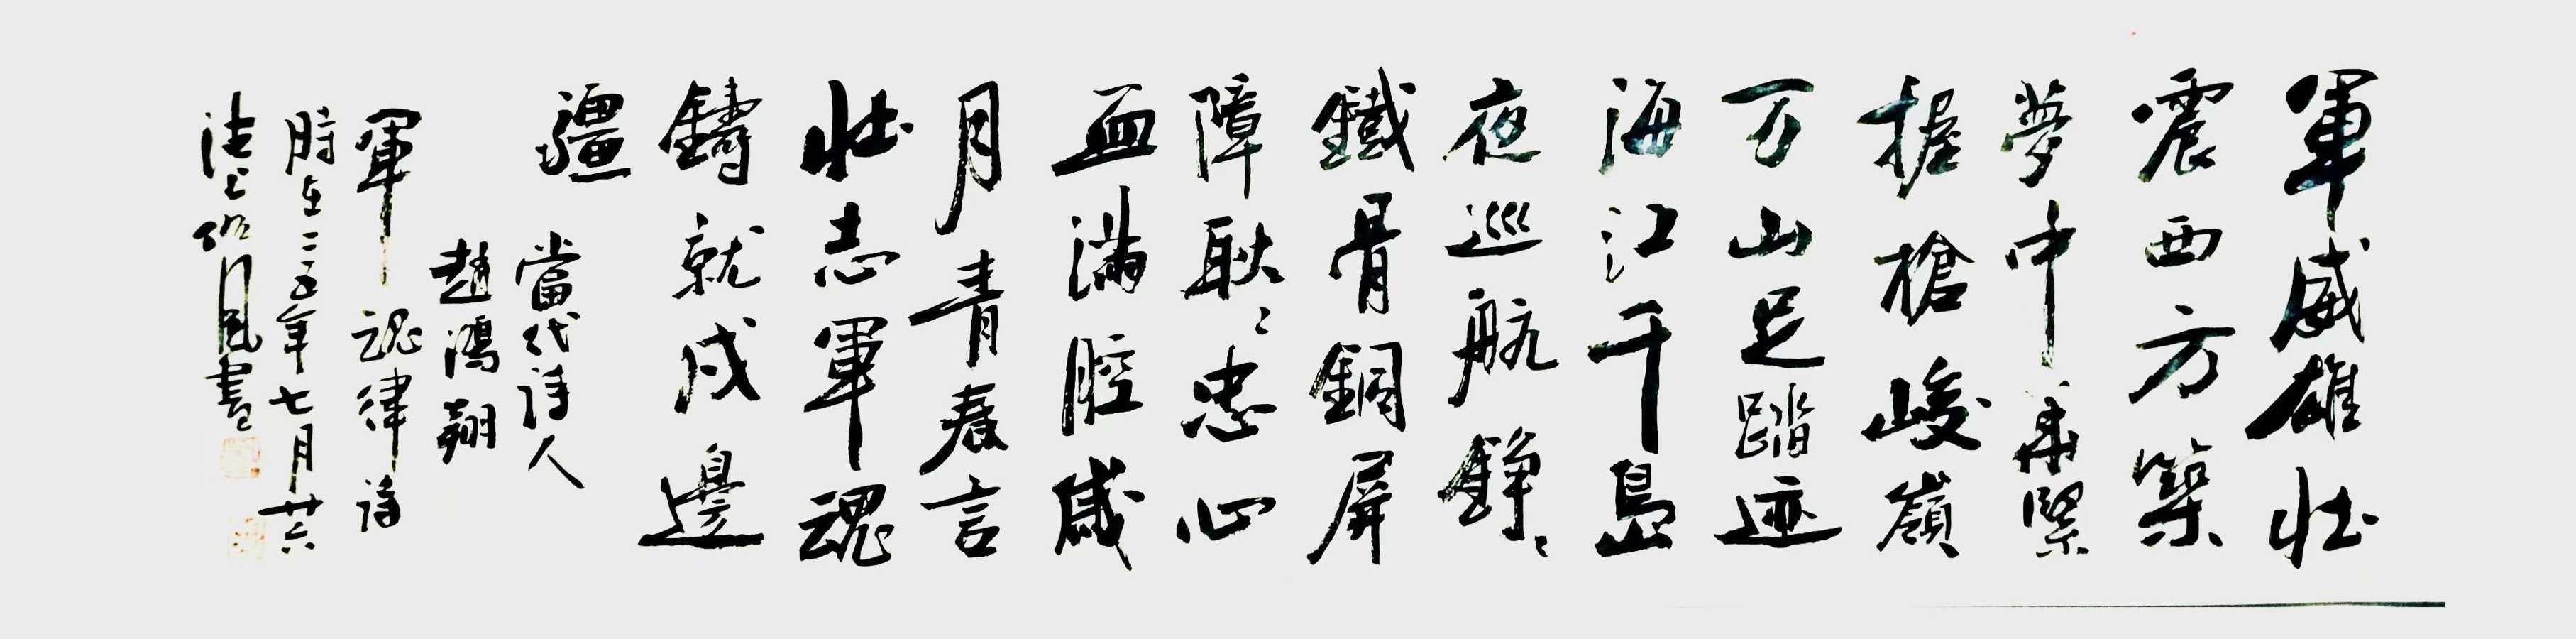 軍威雄壯
震西方築
夢中華緊
握槍峻嶺
万山足踏迹
海江千島
夜巡航錚〻
鐵骨銅屏
障耿〻忠心
血滿腔歲
月青春言
壯志軍魂
鑄就戍邊
疆
當代詩人
趙鴻翔
軍魂律詩
時在二〇二五年七月廿六
風書